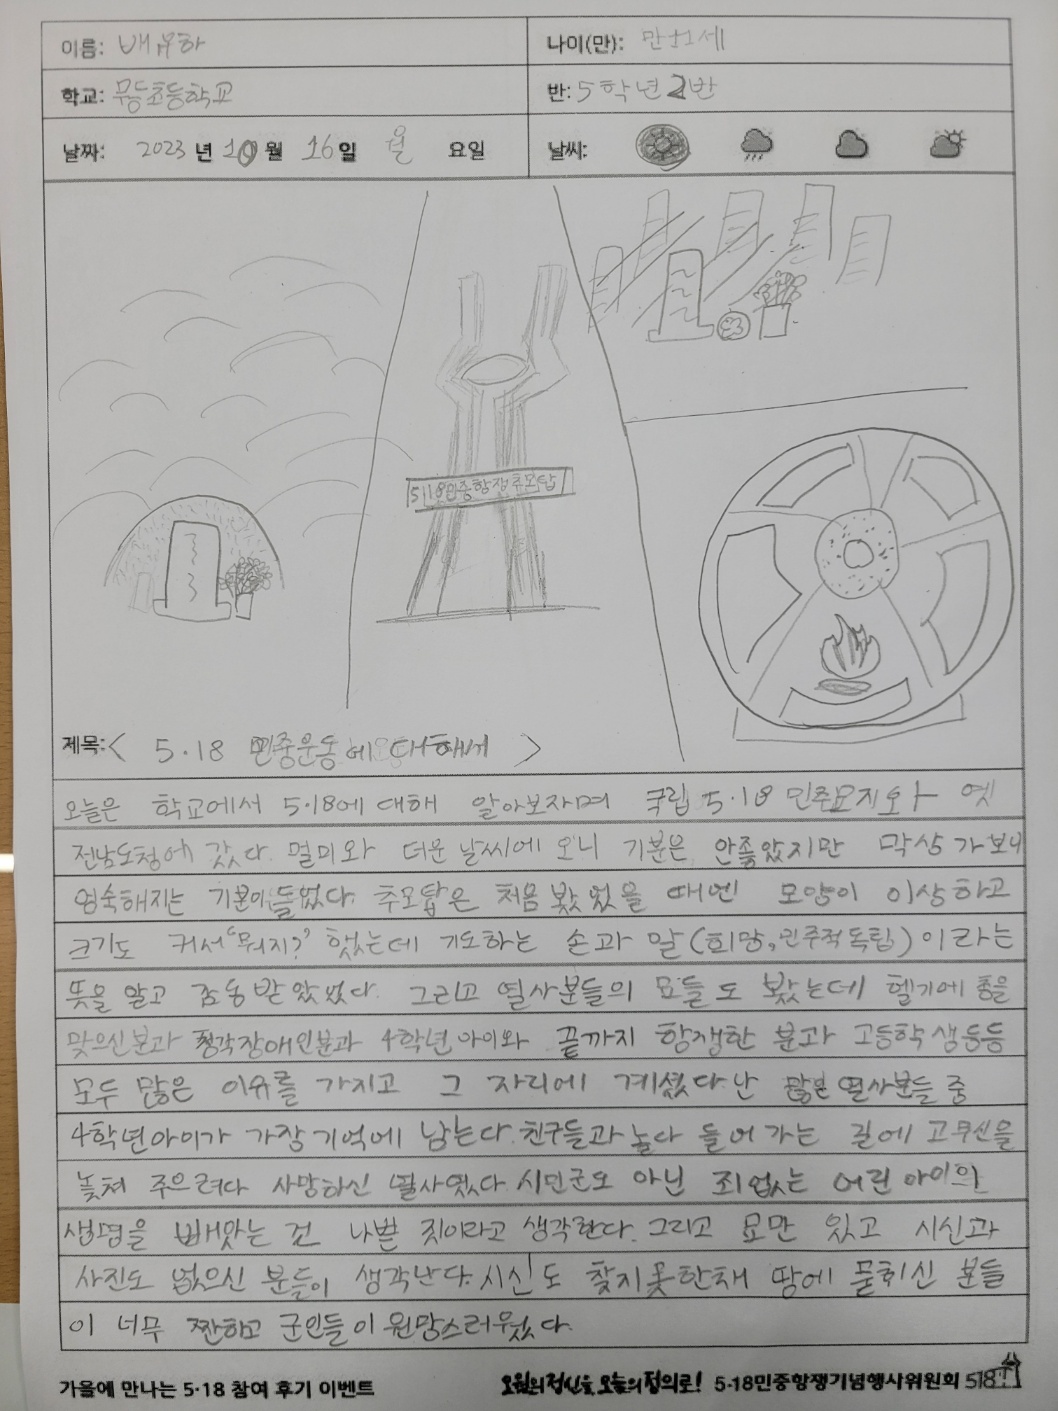 이름: 배유하
나이(만): 만11세
학교: 무등초등학교
반: 5학년 2반
날짜: 2023 년 10 월 16 일 월 요일
날씨:
5·18민중항쟁추모탑
제목: < 5·18 민중운동에 대해서 >
오늘은 학교에서 5·18에 대해 알아보자며 국립 5·18 민주묘지와 옛
전남도청에 갔다. 멀미와 더운 날씨에 오니 기분은 안좋았지만 막상 가보니
엄숙해지는 기분이 들었다. 추모탑은 처음 봤었을 때엔 모양이 이상하고
크기도 커서 '뭐지?' 했었는데 기도하는 손과 알(희망, 민주적독립)이라는
뜻을 알고 감동받았었다. 그리고 열사분들의 묘들도 봤는데 헬기에 총을
맞으신분과 청각장애인분과 4학년아이와 끝까지 항쟁한 분과 고등학생등등
모두 많은 이유를 가지고 그 자리에 계셨다. 난 많은 열사분들 중
4학년아이가 가장 기억에 남는다. 친구들과 놀다 들어가는 길에 고무신을
놓쳐 주으려다 사망하신 열사였다. 시민군도 아닌 죄없는 어린 아이의
생명을 빼앗는 건 나쁜 짓이라고 생각한다. 그리고 묘만 있고 시신과
사진도 없으신 분들이 생각난다. 시신도 찾지못한채 땅에 묻히신 분들
이 너무 짠하고 군인들이 원망스러웠다.
가을에 만나는 5·18 참여 후기 이벤트
오월의 정신을 오늘의 정의로! 5·18민중항쟁기념행사위원회 518